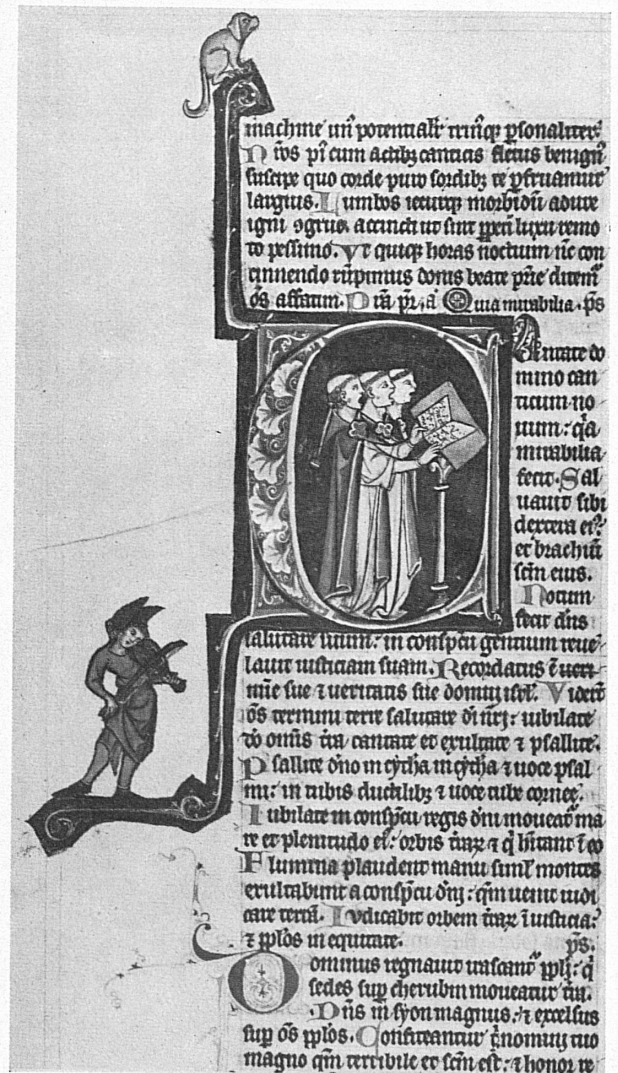 machine uñ potentialr̃ trinq̃ ꝑsonaliter.
N r̃os pı̃ cum actibꝫ canticis fletus benigñ
suscipe quo corde puro sordibꝫ te ꝑfruamur
largius. Lumbos iecurqꝫ morbidũ adure
igni ꝯgruo. accincti ut sint ꝑpeti luxu remo
to pessimo. Vt quiqꝫ horas noctium nc̃ con
cinnendo rũpimus donis beate prĩe ditem᷑
õs affatim. P r̃a pr̃. ã Quia mirabilia. ps̃
Cantate do
mino can
ticum no
uum: q̃a
mirabilia
fecit. Sal
uauit sibi
dextera ei᷒:
et brachiũ
scm̃ eius.
Notum
fecit dñs
salutare suum: in conspc̃u gentium reue
lauit iusticiam suam. Recordatus ẽ mı̃e
sue ⁊ ueritatis sue domuı̃ isrl̃. Viderũt
õs termini terre salutare dı̃ nr̃i: iubilate
dõ omĩs tr̃a cantate et exultate ⁊ psallite.
Psallite dño in cẏtha in cẏtha ⁊ uoce psal
mi: in tubis ductilibꝫ ⁊ uoce tube cornee.
Iubilate in conspc̃u regis dñi moueat᷑ ma
re et plenitudo ei᷒: orbis tr̃aꝝ ⁊ q̃ hı̃tant ĩ eo
Flumina plaudent manu siml̃ montes
exultabunt a conspc̃u dñi: qm̃ uenit iudi
care terrã. Iudicabit orbem tr̃aꝝ ĩ iusticia:
⁊ ppl̃os in equitate. ps̃.
Dominus regnauit irascant᷑ ppl̃i: q̃
sedes suꝑ cherubin moueatur tr̃a.
Dñs in sẏon magnus: ⁊ excelsus
suꝑ õs ppl̃os. Confiteantur ñomini tuo
magno qm̃ terribile et scm̃ est: ⁊ honor re